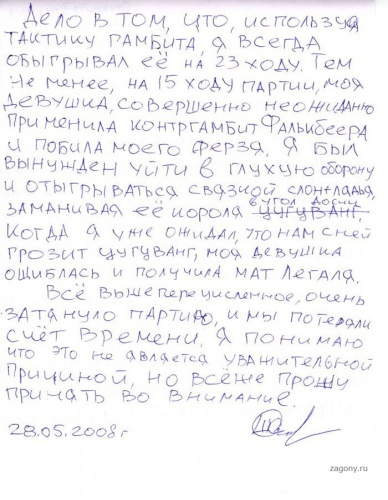 Дело в том, что, используя
тактику гамбита, я всегда
обыгрывал её на 23 ходу. Тем
не менее, на 15 ходу партии, моя
девушка, совершенно неожиданно
применила контргамбит Фалькбеера
и побила моего ферзя. Я был
вынужден уйти в глухую оборону
и отыгрываться связкой слон+ладья,
заманивая её короля в угол доски цугуванг.
Когда я уже ожидал, что нам с ней
грозит цугуванг, моя девушка
ошиблась и получила мат Легаля.
Всё вышеперечисленное, очень
затянуло партию, и мы потеряли
счёт времени. Я понимаю
что это не является уважительной
причиной, но всёже прошу
принать во внимание.
28.05.2008г
zagony.ru